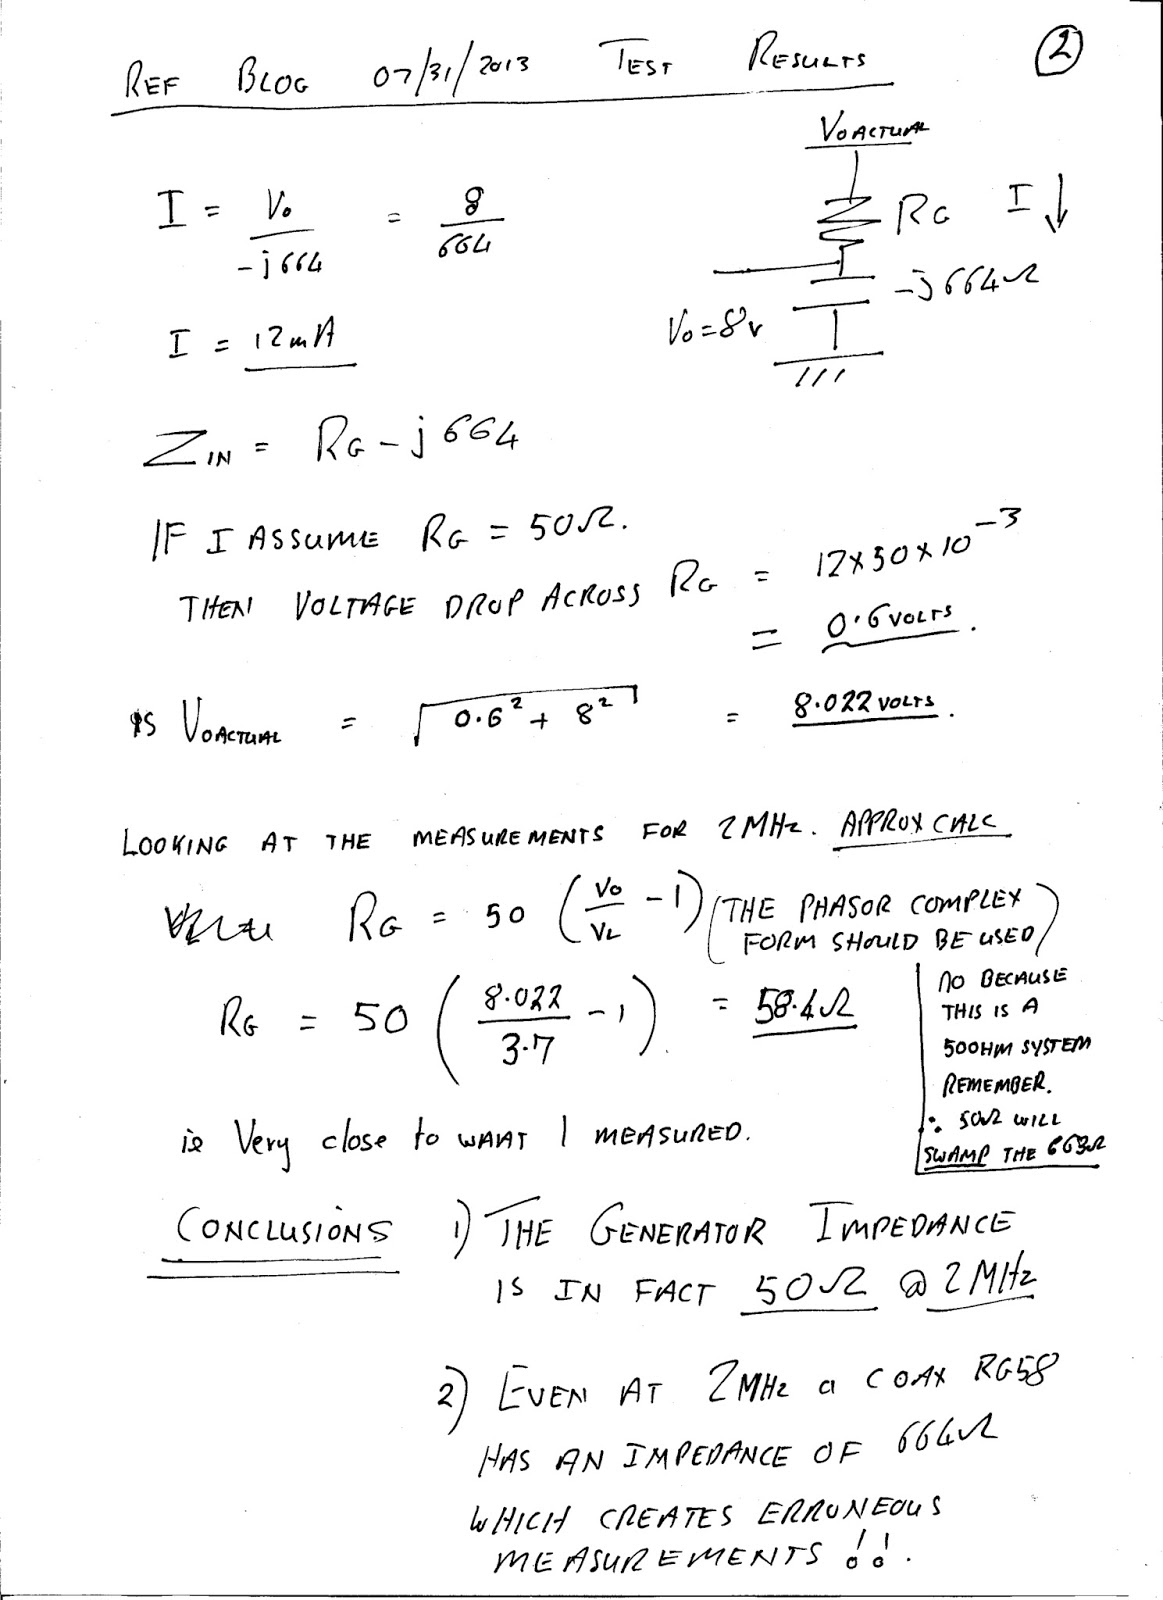 REF BLOG 07/31/2013 TEST RESULTS
2
VOACTUAL
RG I ↓
-j664Ω
Vo=8v
I = Vo/-j664 = 8/664
I = 12mA
ZIN = RG - j664
IF I ASSUME RG = 50Ω.
THEN VOLTAGE DROP ACROSS RG = 12×50×10^-3
= 0.6 VOLTS.
VOACTUAL = √(0.6² + 8²) = 8.022 VOLTS.
LOOKING AT THE MEASUREMENTS FOR 2MHz. APPROX CALC
RG = 50 (Vo/VL - 1) (THE PHASOR COMPLEX
FORM SHOULD BE USED)
RG = 50 (8.022/3.7 - 1) = 58.4Ω
NO BECAUSE
THIS IS A
50OHM SYSTEM
REMEMBER.
∴ 50Ω WILL
SWAMP THE 663Ω
ie Very close to WHAT I MEASURED.
CONCLUSIONS 1) THE GENERATOR IMPEDANCE
IS IN FACT 50Ω @ 2MHz
2) EVEN AT 2MHz a COAX RG58
HAS AN IMPEDANCE OF 664Ω
WHICH CREATES ERRONEOUS
MEASUREMENTS !!.